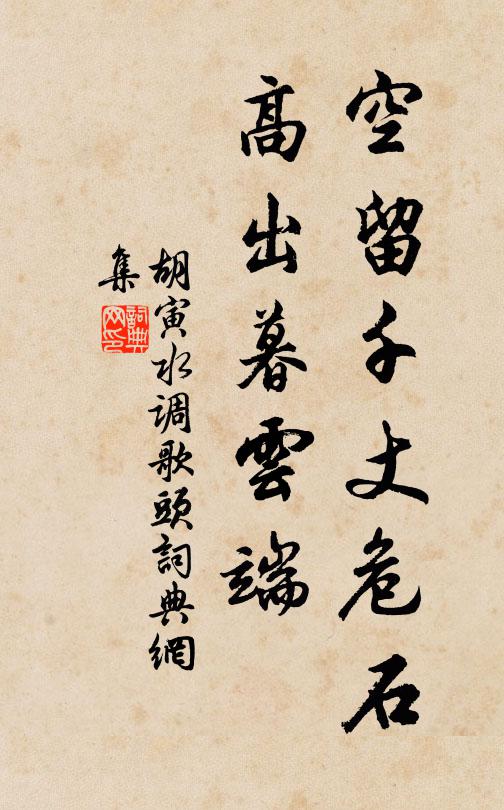 空留千丈危石
高出暮雲端
胡寅水调歌頭詞典網
集
詞典网印